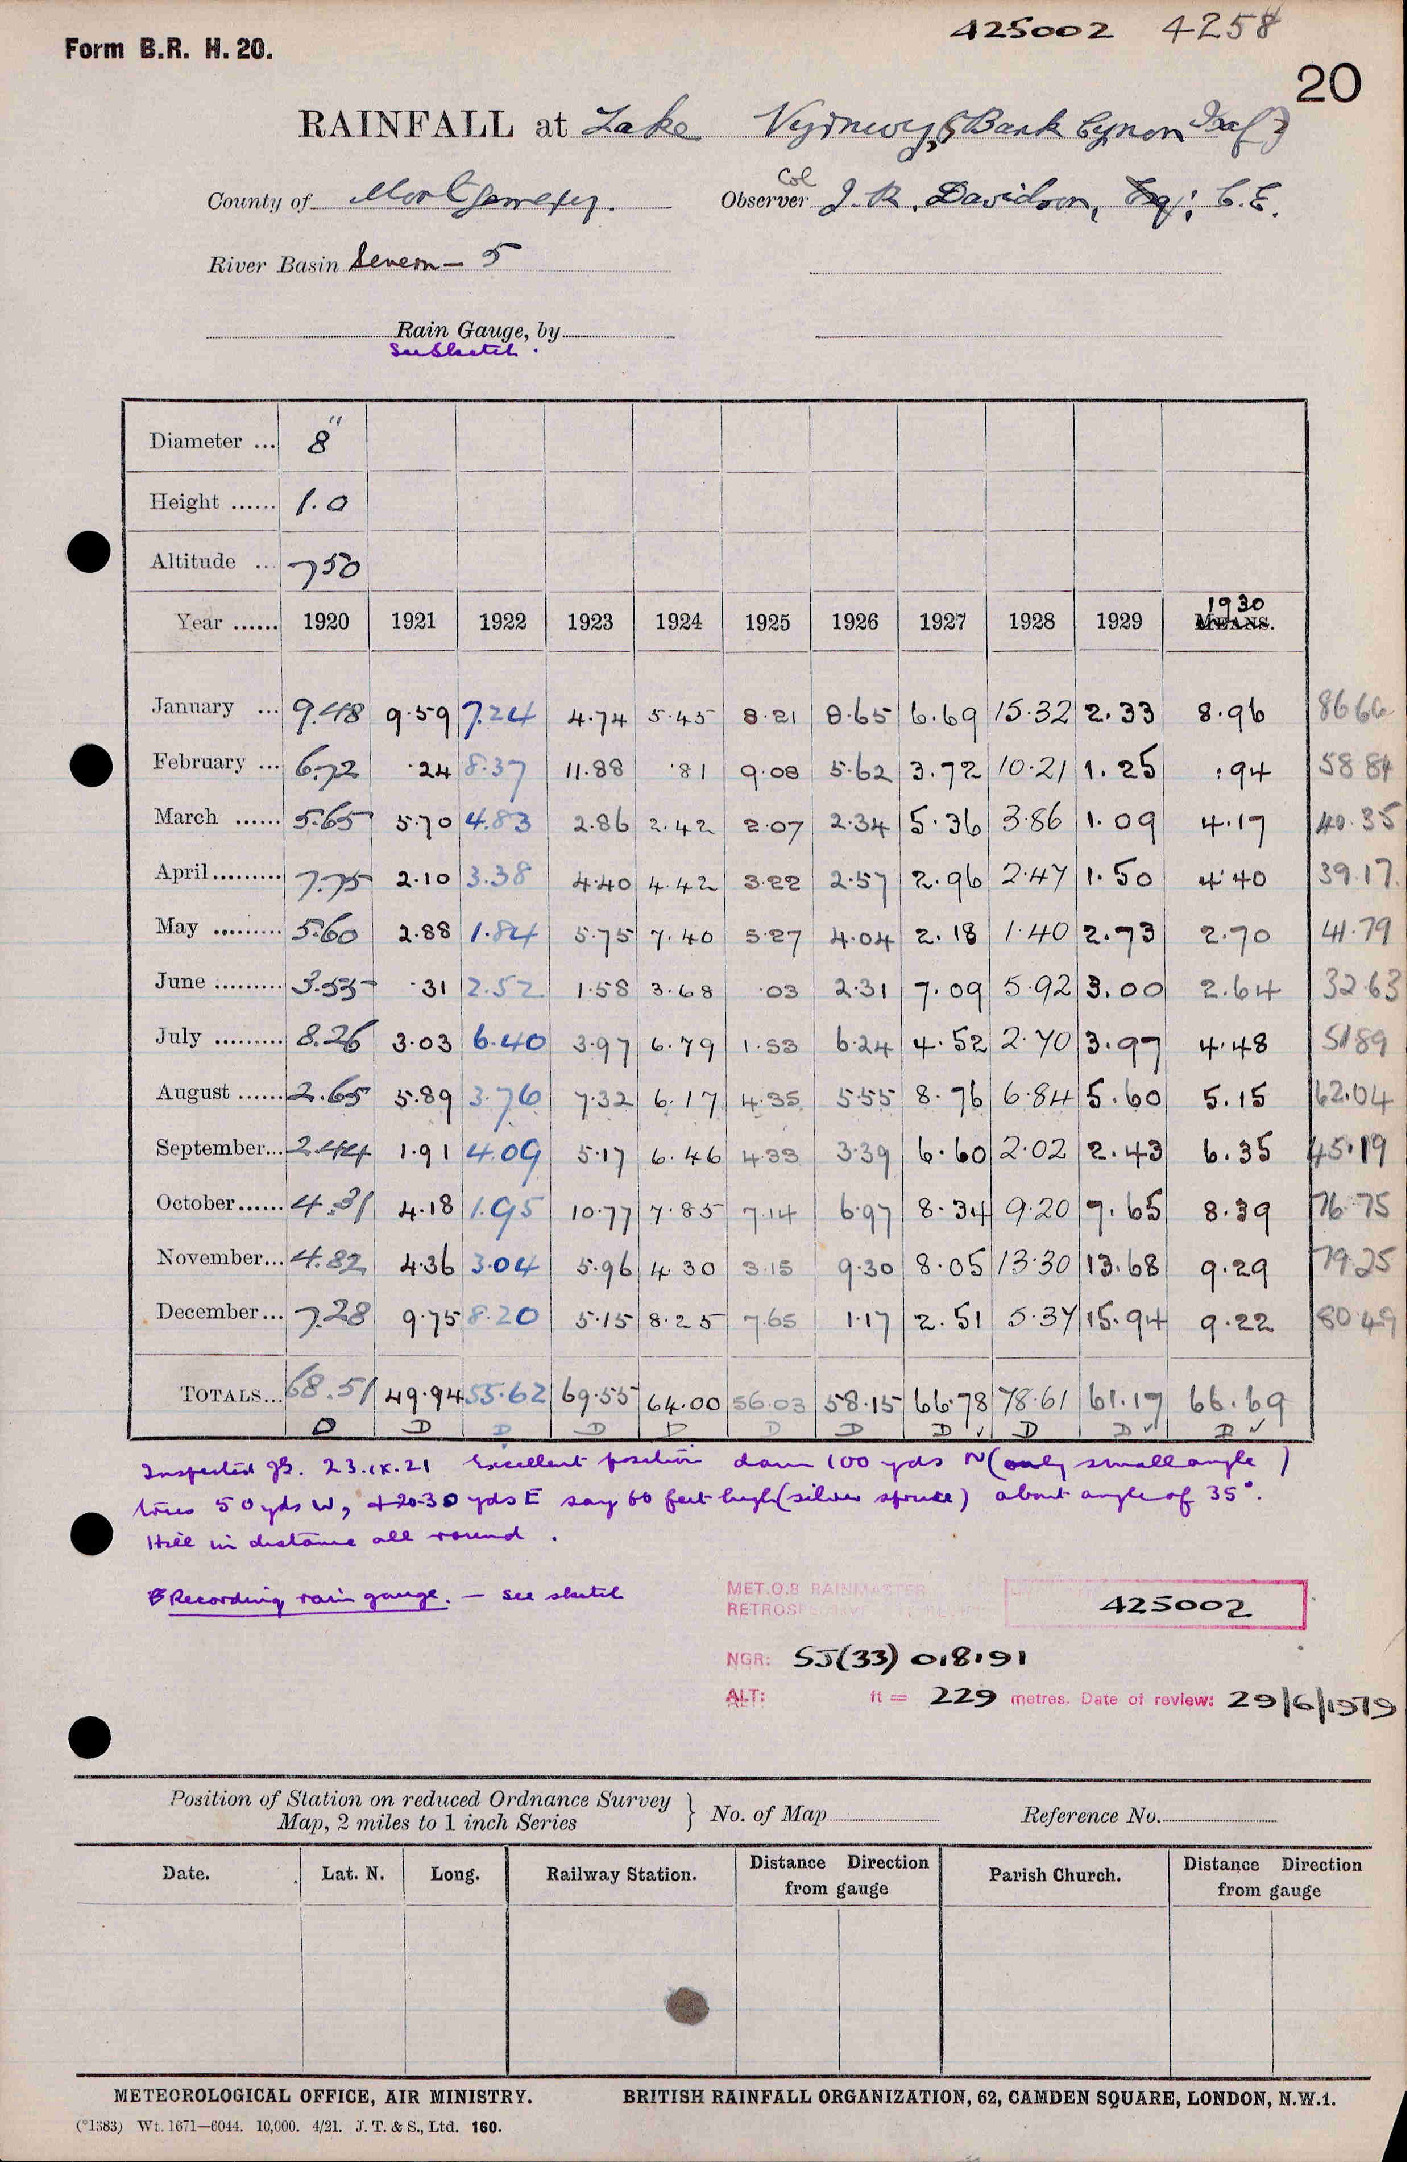 425002 4258
Form B.R. H. 20.
20
RAINFALL at Lake Vyrnwy, (Bank Cynon Isaf)
Col
County of Montgomery. Observer J. R. Davidson, Esq; C.E.
River Basin Severn - 5
Rain Gauge, by
See Sketch.
Diameter ... 8"
Height ...... 1.0
Altitude ... 750
1930
Year ...... 1920 1921 1922 1923 1924 1925 1926 1927 1928 1929 MEANS.
January ... 9.48 9.59 7.24 4.74 5.45 8.21 8.65 6.69 15.32 2.33 8.96 86.66
February ... 6.72 .24 8.37 11.88 .81 9.08 5.62 3.72 10.21 1.25 .94 58.84
March ...... 5.65 5.70 4.83 2.86 2.42 2.07 2.34 5.36 3.86 1.09 4.17 40.35
April ......... 7.75 2.10 3.38 4.40 4.42 3.22 2.57 2.96 2.47 1.50 4.40 39.17
May ......... 5.60 2.88 1.84 5.75 7.40 5.27 4.04 2.18 1.40 2.73 2.70 41.79
June ......... 3.55 .31 2.52 1.58 3.68 .03 2.31 7.09 5.92 3.00 2.64 32.63
July ......... 8.26 3.03 6.40 3.97 6.79 1.53 6.24 4.52 2.70 3.97 4.48 51.89
August ...... 2.65 5.89 3.76 7.32 6.17 4.35 5.55 8.76 6.84 5.60 5.15 62.04
September... 2.44 1.91 4.09 5.17 6.46 4.33 3.39 6.60 2.02 2.43 6.35 45.19
October...... 4.31 4.18 1.95 10.77 7.85 7.14 6.97 8.34 9.20 7.65 8.39 76.75
November... 4.82 4.36 3.04 5.96 4.30 3.15 9.30 8.05 13.30 13.68 9.29 79.25
December... 7.28 9.75 8.20 5.15 8.25 7.65 1.17 2.51 5.37 15.94 9.22 80.49
TOTALS... 68.51 49.94 55.62 69.55 64.00 56.03 58.15 66.78 78.61 61.17 66.69
D D D D D D D D ✓ D D ✓ D ✓
Inspected JG. 23.IX.21 Excellent position dam 100 yds N (only small angle)
trees 50 yds W, + 20-30 yds E say 60 feet high (silver spruce) about angle of 35°.
Hill in distance all round.
Recording rain gauge. — see sketch
MET.O.8 RAINMASTER
RETROSPECTIVE
425002
NGR: SJ(33) 018191
ALT: ft = 229 metres. Date of review: 29/6/1979
Position of Station on reduced Ordnance Survey
Map, 2 miles to 1 inch Series } No. of Map Reference No.
Date. Lat. N. Long. Railway Station. Distance Direction from gauge Parish Church. Distance Direction from gauge
METEOROLOGICAL OFFICE, AIR MINISTRY. BRITISH RAINFALL ORGANIZATION, 62, CAMDEN SQUARE, LONDON, N.W.1.
(*1383) Wt. 1671—6044. 10,000. 4/21. J. T. & S., Ltd. 160.